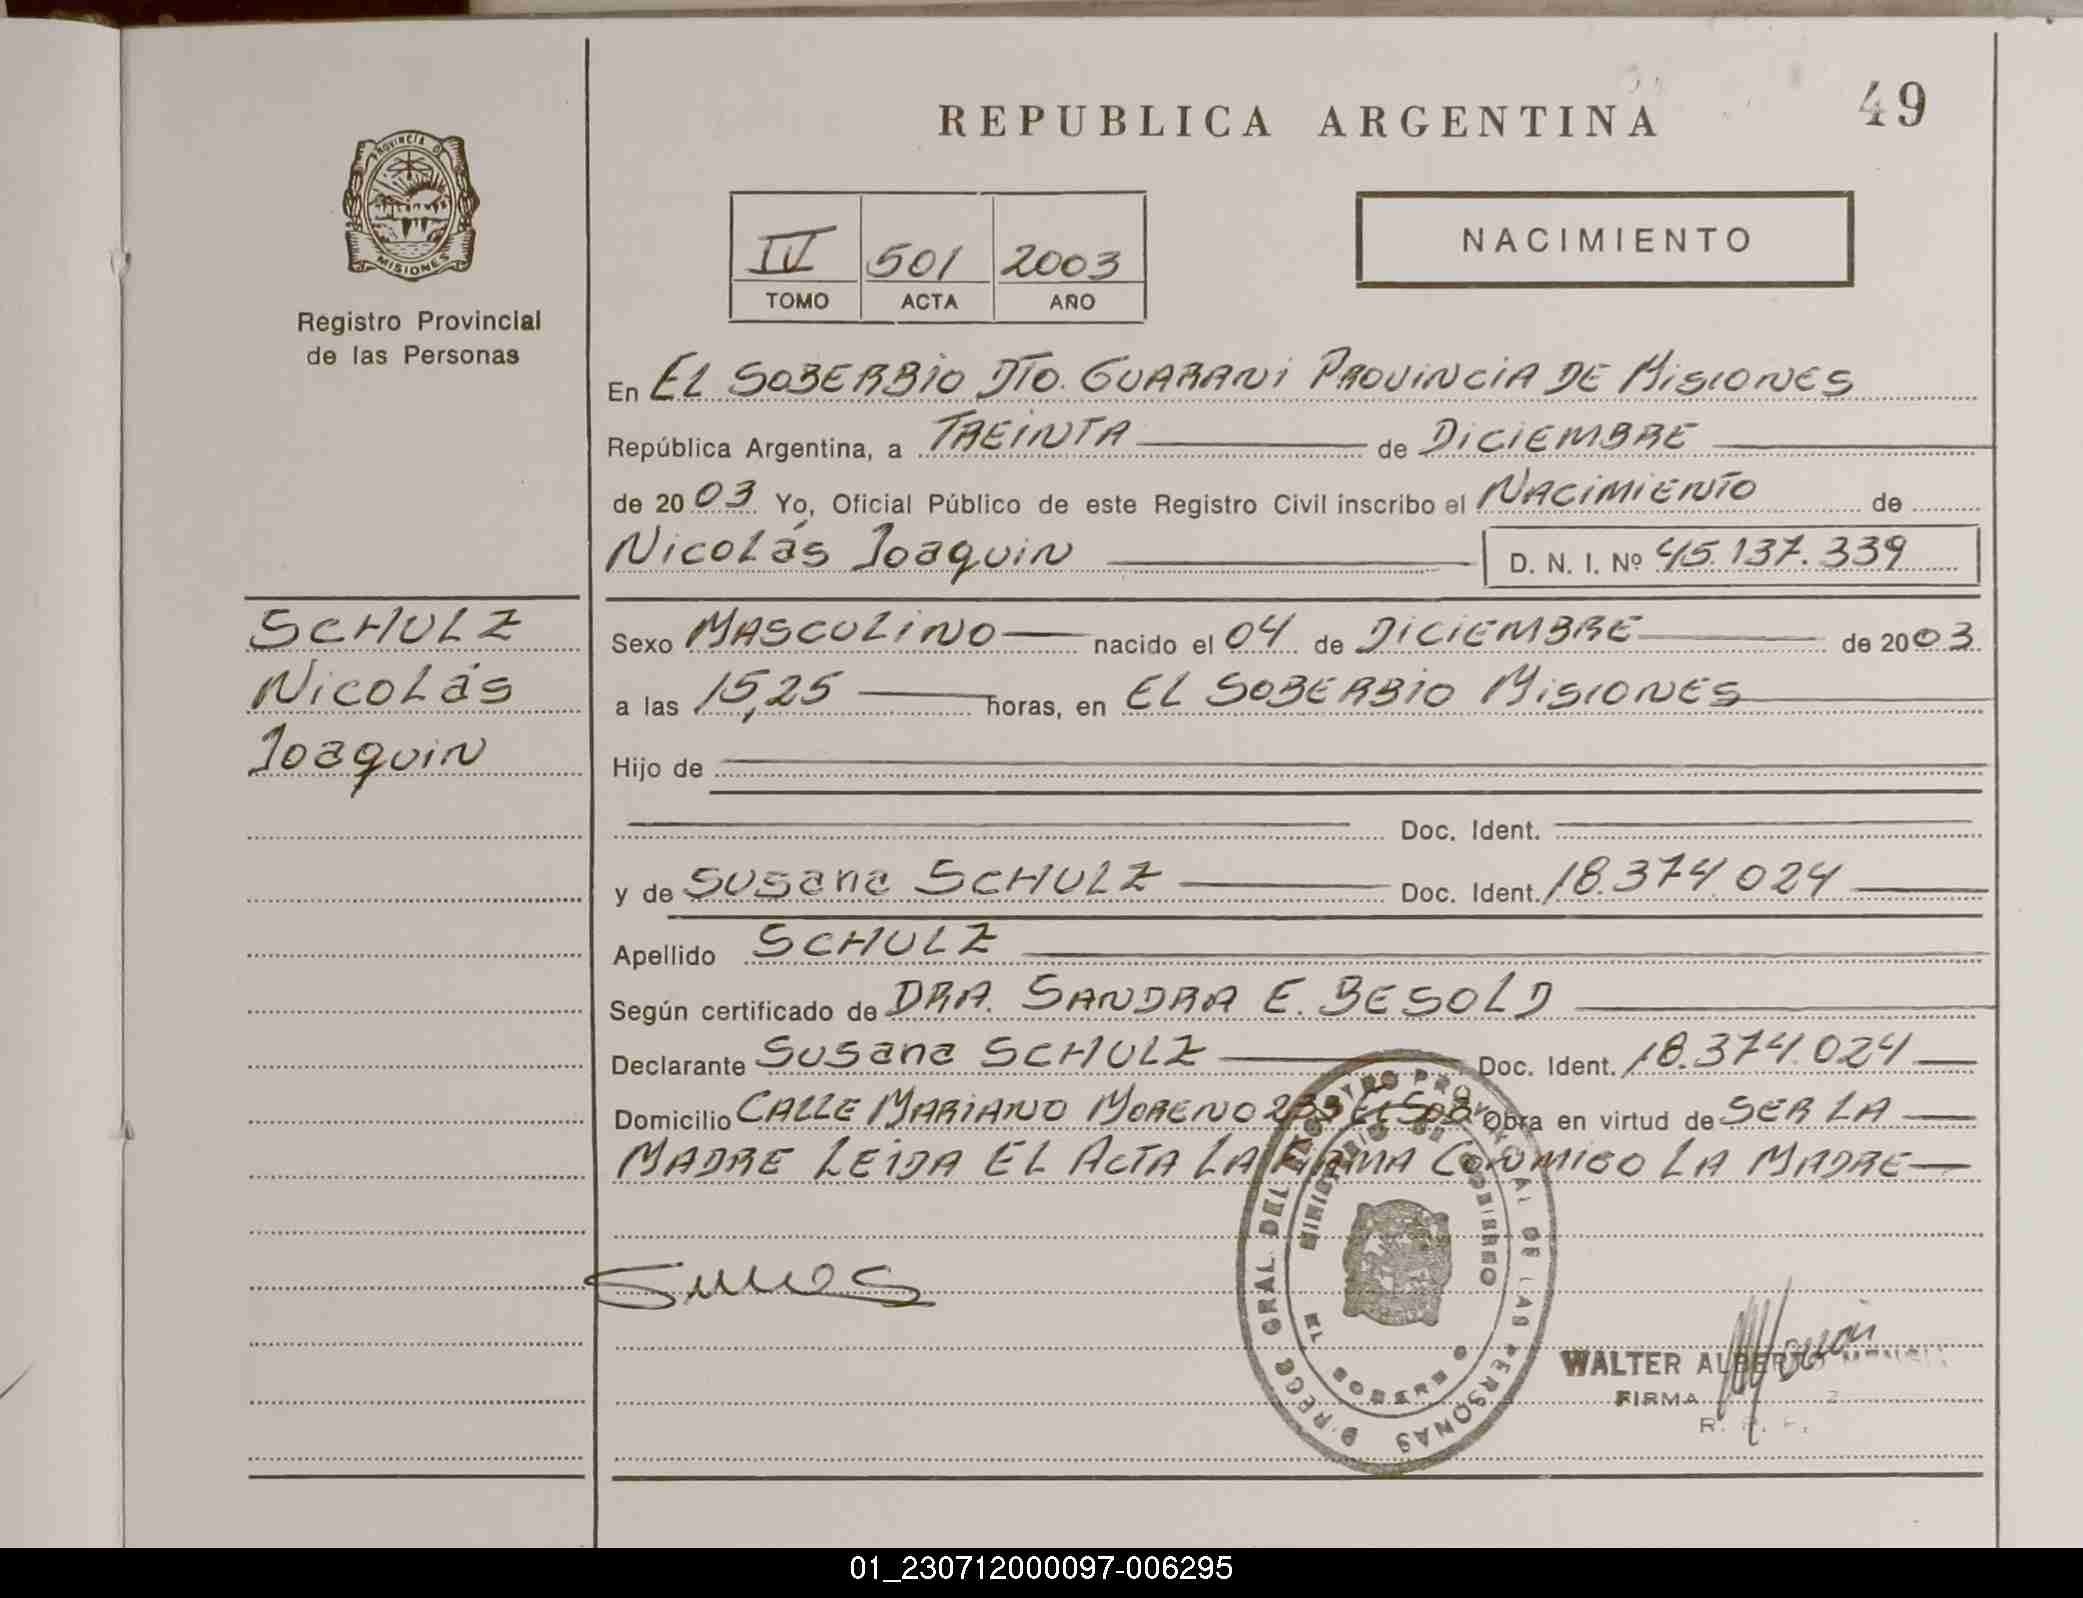 REPUBLICA ARGENTINA
49
PROVINCIA D MISIONES
Registro Provincial
de las Personas
IV 501 2003
TOMO ACTA AÑO
NACIMIENTO
En EL SOBERBIO DTO. GUARANI PROVINCIA DE MISIONES
República Argentina, a TREINTA de DICIEMBRE
de 2003 Yo, Oficial Público de este Registro Civil inscribo el NACIMIENTO de
Nicolás Joaquin D. N. I. Nº 45.137.339
SCHULZ
Nicolás
Joaquin
Sexo MASCULINO nacido el 04 de DICIEMBRE de 2003
a las 15,25 horas, en EL SOBERBIO MISIONES
Hijo de
Doc. Ident.
y de Susana SCHULZ Doc. Ident. 18.374.024
Apellido SCHULZ
Según certificado de DRA. SANDRA E. BESOLD
Declarante Susana SCHULZ Doc. Ident. 18.374.024
Domicilio CALLE MARIANO MORENO EL SOB Obra en virtud de SER LA
MADRE LEIDA EL ACTA LA FIRMA CONMIGO LA MADRE
DIRECC GRAL. DEL REGISTRO PROVINCIAL DE LAS PERSONAS
MINISTERIO DE GOBIERNO
EL SOBERBIO
WALTER ALBERTO
FIRMA
01_230712000097-006295